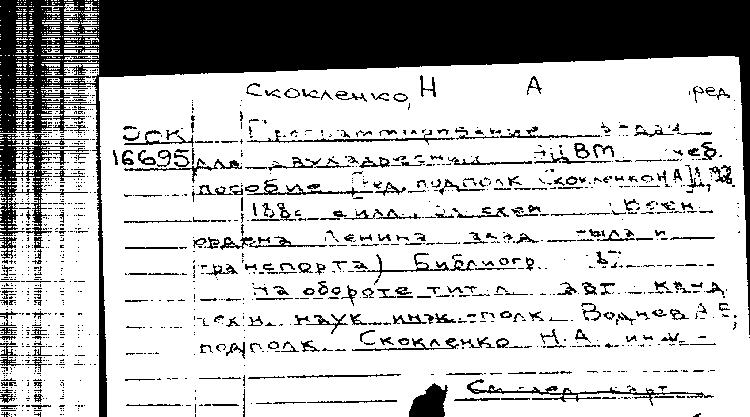 Скокленко, Н А ред
Эск Программирование задач
16695 для двухадресных ЭЦВМ Учеб.
пособие [Ред. подполк Скокленко Н А]
188с с илл., схем (Воен
ордена Ленина акад тыла и
транспорта) Библиогр
На обороте тит л авт канд
техн. наук инж-полк. Воднев
подполк. Скокленко Н.А. инж-
См след. карт